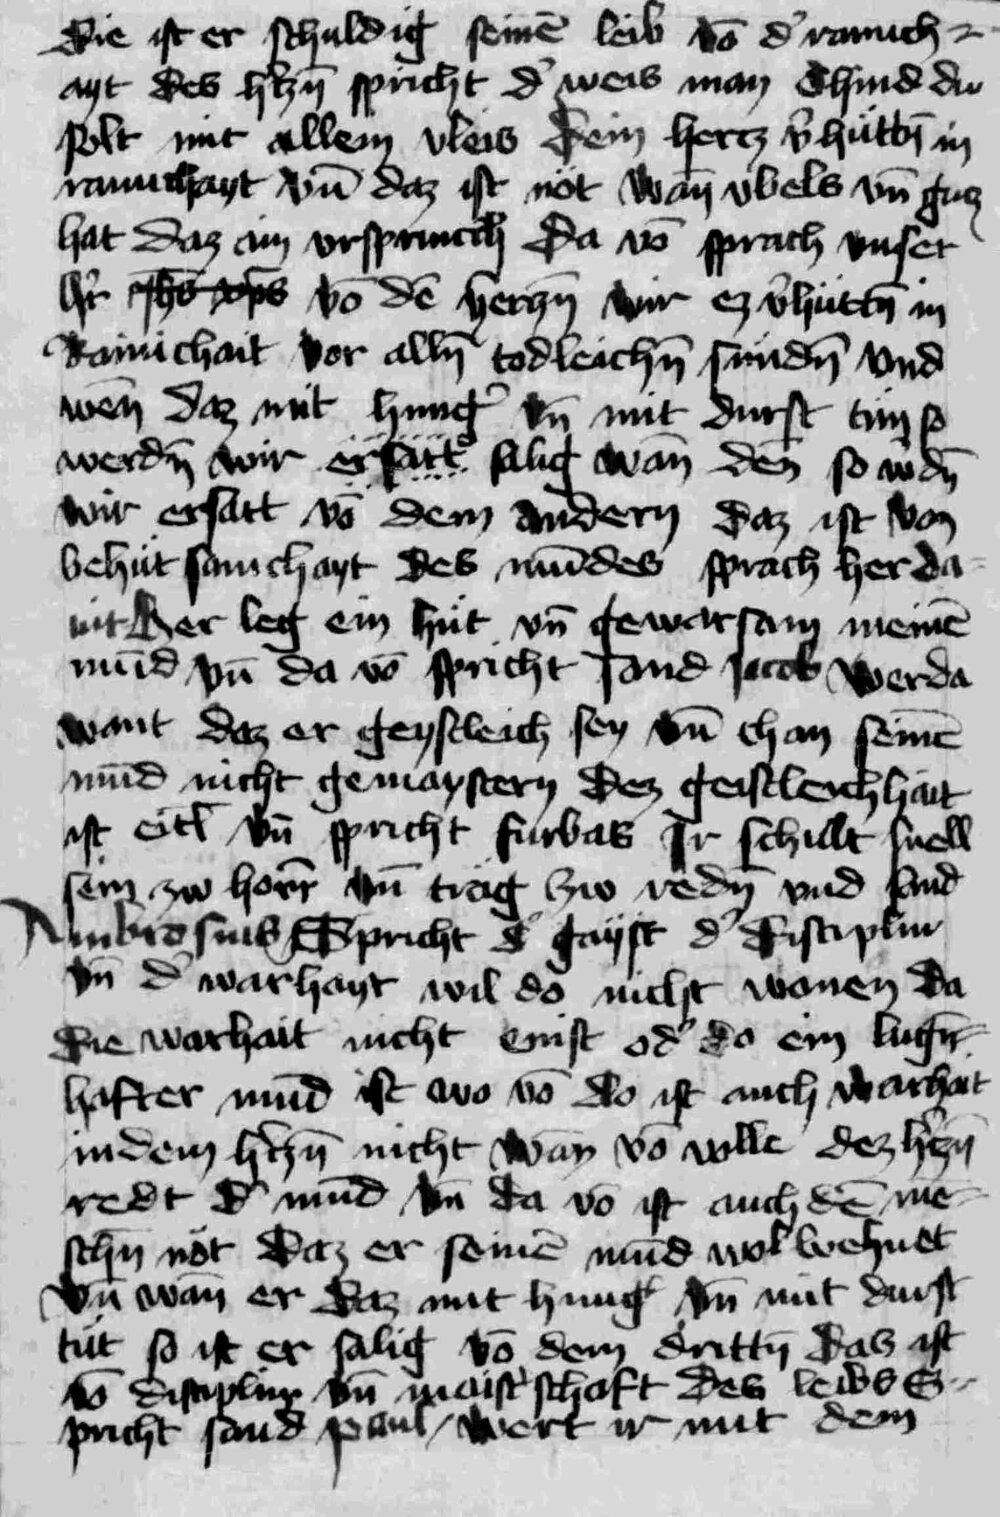 die ist er schuldig seinē leib võ d' rainich-
ayt des h'tzn̄ spricht d' weis man Chind du
solt mit allem vleis dein hertz v'hüttn̄ in
rainichayt vn̄ daz ist nöt wan̄ vbels vn̄ gutz
hat daz ain vrsprunch da vō sprach vnser
h'r jhs xp̄s vō dē herczn̄ wir ez v'hüttn̄ in
Rainichait vor alln̄ todleichn̄ sundn̄ vnd
wen̄ daz mit hung' vn̄ mit durst tun so
werdn̄ wir ersatt salig wan̄ den̄ so w'dn̄
wir ersatt vō dem andern daz ist von
behüt samchayt des mūdes sprach her da-
uit Her leg ein hüt vn̄ gewarsam meinē
mūd vn̄ da vō spricht Sand Jacob Wer da
want daz er geystleich sey vn̄ chan seinē
mūd nicht gemaystern dez geistleichhait
ist eitl vn̄ spricht furbas Ir schult snell
sein zw horn̄ vn̄ träg hzw redn̄ vnd sand
Ambrosius Spricht d' gayst d' disciplin
vn̄ d' warhayt wil do nicht wonen da
die warhait nicht enist od' do ein lugn̄-
hafter mūd ist wo vō do ist auch warhait
in dem h'tzn̄ nicht wan vō volle dez h'tzn̄
redt d' mūd vn̄ da vō ist auch dē mē-
schn̄ nöt daz er seinē mūd wol behuet
vn̄ wan̄ er daz mit hung' vn̄ mit durst
tüt so ist er salig vō dem drittn̄ das ist
vō disciplin vn̄ maist'schaft des leibs S-
pricht sand paul / wert ir mit dem